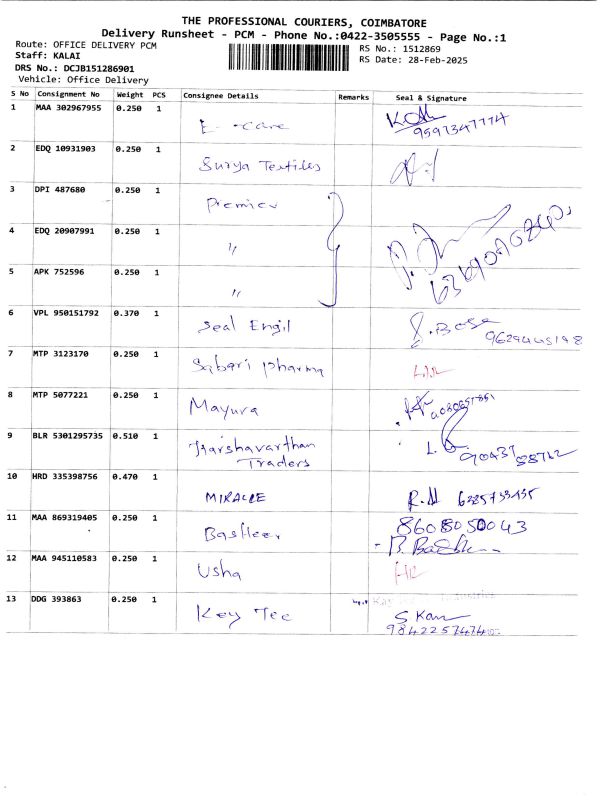 THE PROFESSIONAL COURIERS, COIMBATORE
Delivery Runsheet - PCM - Phone No.:0422-3505555 - Page No.:1
Route: OFFICE DELIVERY PCM
Staff: KALAI
DRS No.: DCJB151286901
Vehicle: Office Delivery
RS No.: 1512869
RS Date: 28-Feb-2025
S No Consignment No Weight PCS Consignee Details Remarks Seal & Signature
1 MAA 302967955 0.250 1 E-care 9597347774
2 EDQ 10931903 0.250 1 Surya Textiles
3 DPI 487680 0.250 1 Premier
4 EDQ 20907991 0.250 1 "
5 APK 752596 0.250 1 "
6 VPL 950151792 0.370 1 Seal Engil S. Bose
7 MTP 3123170 0.250 1 Sabari pharma
8 MTP 5077221 0.250 1 Mayura
9 BLR 5301295735 0.510 1 Harshavarthan
Traders
10 HRD 335398756 0.470 1 MIRACLE
11 MAA 869319405 0.250 1 Basheer 8608050043
12 MAA 945110583 0.250 1 Usha
13 DDG 393863 0.250 1 Key Tec S Kan
9842257474